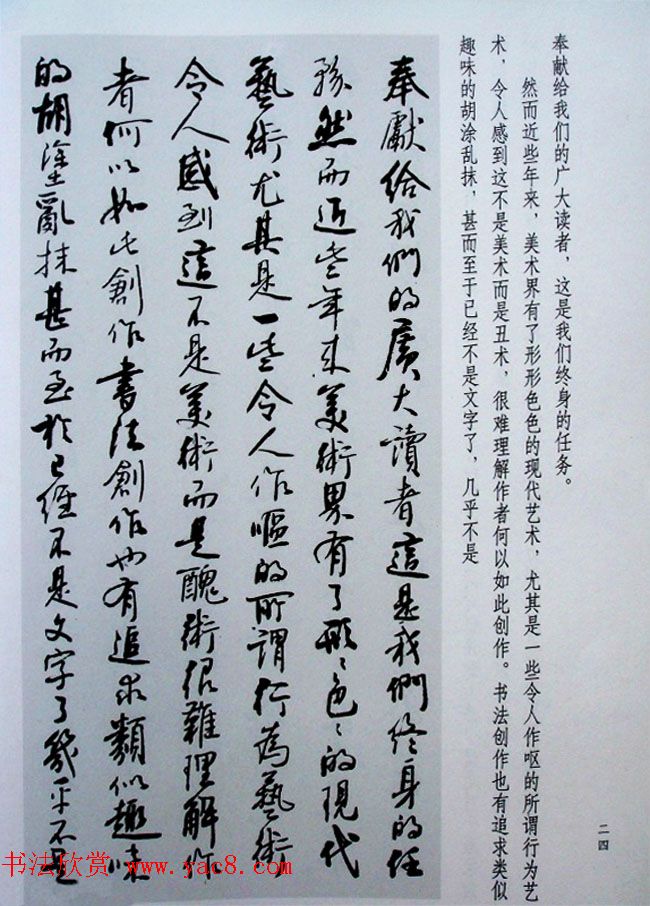 二四
奉献给我们的广大读者，这是我们终身的任务。
然而近些年来，美术界有了形形色色的现代艺术，尤其是一些令人作呕的所谓行为艺
术，令人感到这不是美术而是丑术，很难理解作者何以如此创作。书法创作也有追求类似
趣味的胡涂乱抹，甚而至于已经不是文字了，几乎不是
奉獻給我們的廣大讀者這是我們終身的任
務然而近些年来美術界有了形〻色〻的現代
藝術尤其是一些令人作嘔的所謂行為藝術
令人感到這不是美術而是醜術很難理解作
者何以如此創作書法創作也有追求類似趣味
的胡塗亂抹甚而至於已經不是文字了幾乎不是
书法欣赏 www.yac8.com